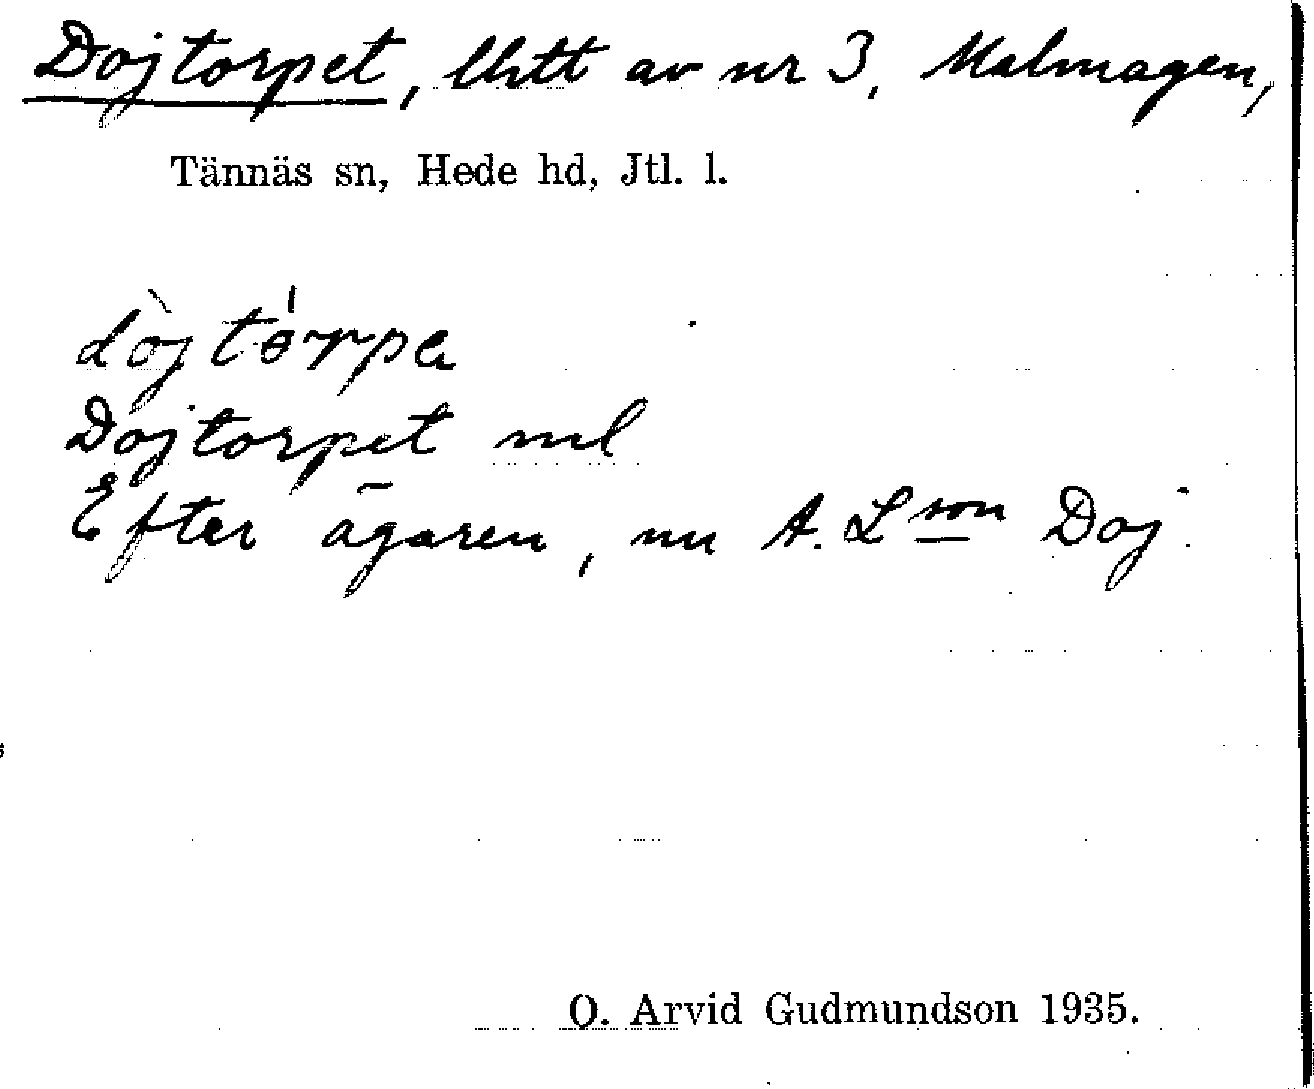 Dojtorpet, lhtt av nr 3, Malmagen,
Tännäs sn, Hede hd, Jtl. l.
dòjtórpa
Dojtorpet ml
Efter ägaren, nu A. Lson Doj
O. Arvid Gudmundson 1935.